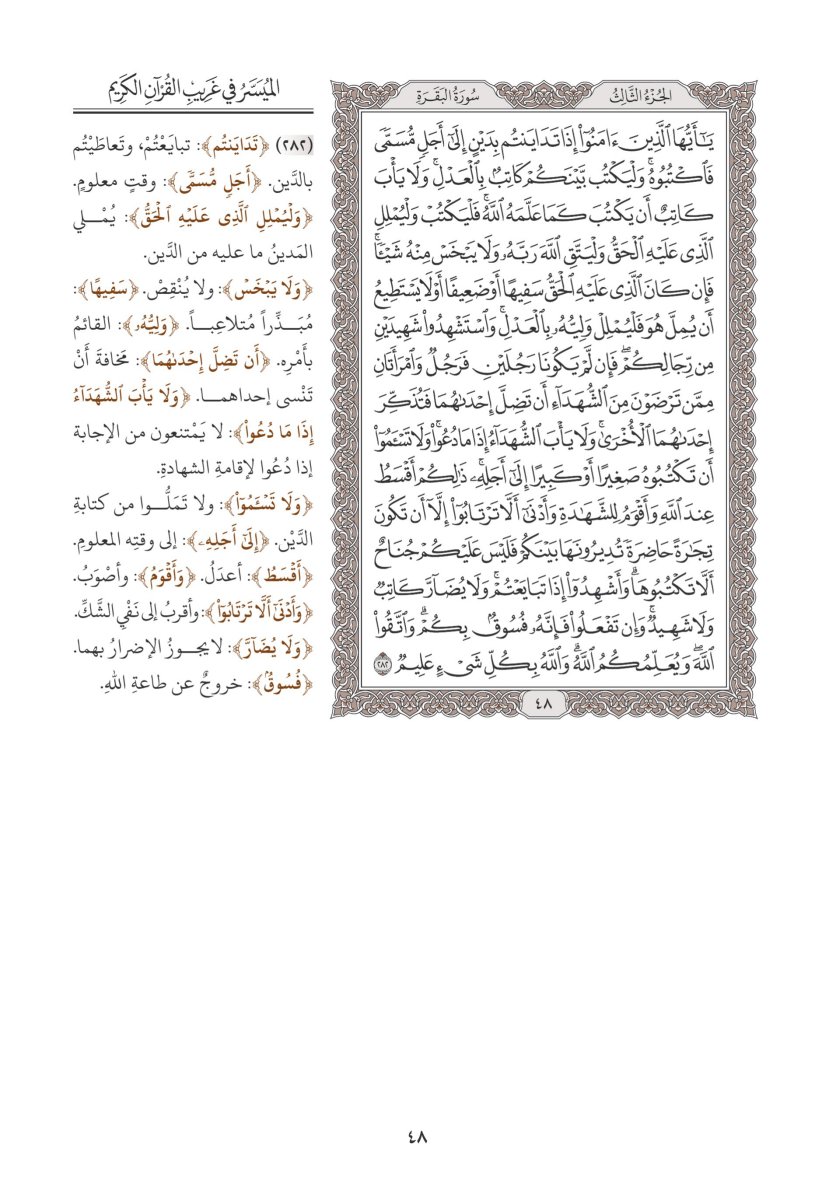 الجُزْءُ الثَّالِثُ
سُورَةُ البَقَرَةِ
يَـٰٓأَيُّهَا ٱلَّذِينَ ءَامَنُوٓا۟ إِذَا تَدَايَنتُم بِدَيْنٍ إِلَىٰٓ أَجَلٍ مُّسَمًّى
فَٱكْتُبُوهُ ۚ وَلْيَكْتُب بَّيْنَكُمْ كَاتِبٌۢ بِٱلْعَدْلِ ۚ وَلَا يَأْبَ
كَاتِبٌ أَن يَكْتُبَ كَمَا عَلَّمَهُ ٱللَّهُ ۚ فَلْيَكْتُبْ وَلْيُمْلِلِ
ٱلَّذِى عَلَيْهِ ٱلْحَقُّ وَلْيَتَّقِ ٱللَّهَ رَبَّهُۥ وَلَا يَبْخَسْ مِنْهُ شَيْـًٔا ۚ
فَإِن كَانَ ٱلَّذِى عَلَيْهِ ٱلْحَقُّ سَفِيهًا أَوْ ضَعِيفًا أَوْ لَا يَسْتَطِيعُ
أَن يُمِلَّ هُوَ فَلْيُمْلِلْ وَلِيُّهُۥ بِٱلْعَدْلِ ۚ وَٱسْتَشْهِدُوا۟ شَهِيدَيْنِ
مِن رِّجَالِكُمْ ۖ فَإِن لَّمْ يَكُونَا رَجُلَيْنِ فَرَجُلٌ وَٱمْرَأَتَانِ
مِمَّن تَرْضَوْنَ مِنَ ٱلشُّهَدَآءِ أَن تَضِلَّ إِحْدَىٰهُمَا فَتُذَكِّرَ
إِحْدَىٰهُمَا ٱلْأُخْرَىٰ ۚ وَلَا يَأْبَ ٱلشُّهَدَآءُ إِذَا مَا دُعُوا۟ ۚ وَلَا تَسْـَٔمُوٓا۟
أَن تَكْتُبُوهُ صَغِيرًا أَوْ كَبِيرًا إِلَىٰٓ أَجَلِهِۦ ۚ ذَٰلِكُمْ أَقْسَطُ
عِندَ ٱللَّهِ وَأَقْوَمُ لِلشَّهَـٰدَةِ وَأَدْنَىٰٓ أَلَّا تَرْتَابُوٓا۟ ۖ إِلَّآ أَن تَكُونَ
تِجَـٰرَةً حَاضِرَةً تُدِيرُونَهَا بَيْنَكُمْ فَلَيْسَ عَلَيْكُمْ جُنَاحٌ
أَلَّا تَكْتُبُوهَا ۗ وَأَشْهِدُوٓا۟ إِذَا تَبَايَعْتُمْ ۚ وَلَا يُضَآرَّ كَاتِبٌ
وَلَا شَهِيدٌ ۚ وَإِن تَفْعَلُوا۟ فَإِنَّهُۥ فُسُوقٌۢ بِكُمْ ۗ وَٱتَّقُوا۟
ٱللَّهَ ۖ وَيُعَلِّمُكُمُ ٱللَّهُ ۗ وَٱللَّهُ بِكُلِّ شَىْءٍ عَلِيمٌ ٢٨٢
٤٨
المُيَسَّرُ في غَرِيبِ القُرْآنِ الكَرِيمِ
(٢٨٢) ﴿تَدَايَنتُم﴾: تبايَعْتُمْ، وتَعاطَيْتُم
بالدَّين. ﴿أَجَلٍ مُّسَمًّى﴾: وقتٍ معلومٍ.
﴿وَلْيُمْلِلِ ٱلَّذِى عَلَيْهِ ٱلْحَقُّ﴾: يُمْلي
المَدينُ ما عليه من الدَّين.
﴿وَلَا يَبْخَسْ﴾: ولا يُنْقِصْ. ﴿سَفِيهًا﴾:
مُبَذِّراً مُتلاعِباً. ﴿وَلِيُّهُۥ﴾: القائمُ
بأَمْرِه. ﴿أَن تَضِلَّ إِحْدَىٰهُمَا﴾: مَخافةَ أَنْ
تَنْسى إحداهما. ﴿وَلَا يَأْبَ ٱلشُّهَدَآءُ
إِذَا مَا دُعُوا۟﴾: لا يَمْتنعون من الإجابة
إذا دُعُوا لإقامةِ الشهادةِ.
﴿وَلَا تَسْـَٔمُوٓا۟﴾: ولا تَمَلُّوا من كتابةِ
الدَّيْنِ. ﴿إِلَىٰٓ أَجَلِهِۦ﴾: إلى وقتِه المعلومِ.
﴿أَقْسَطُ﴾: أعدَلُ. ﴿وَأَقْوَمُ﴾: وأصْوَبُ.
﴿وَأَدْنَىٰٓ أَلَّا تَرْتَابُوٓا۟﴾: وأقربُ إلى نَفْيِ الشَّكِّ.
﴿وَلَا يُضَآرَّ﴾: لا يجوزُ الإضرارُ بهما.
﴿فُسُوقٌۢ﴾: خروجٌ عن طاعةِ اللهِ.
٤٨